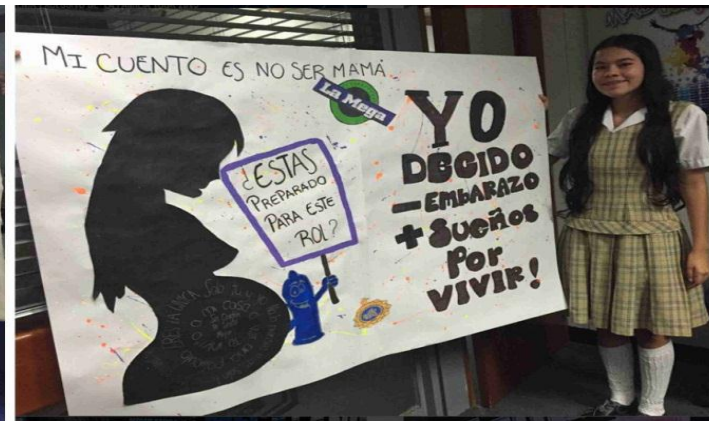 MI CUENTO ES NO SER MAMÁ
La Mega
¿ESTAS
PREPARADO
PARA ESTE
ROL?
YO
DECIDO
- EMBARAZO
+ Sueños
Por
VIVIR!